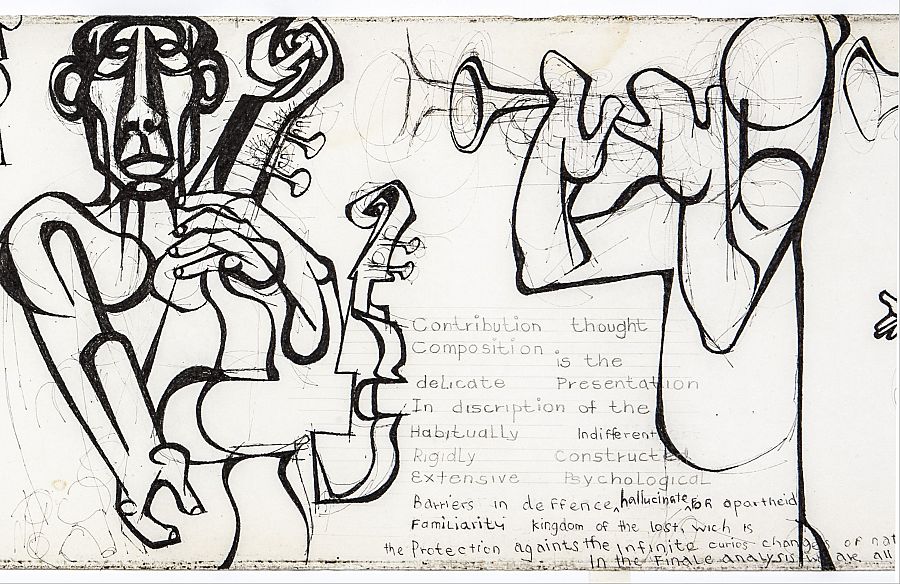 Contribution thought
Composition is the
delicate Presentation
In discription of the
Habitually Indifferent
Rigidly Constructed
Extensive Psychological
Barriers in deffence, hallucinate, for apartheid
Familiarity kingdom of the lost, wich is
the Protection againts the infinite curios changes of nat
In the Finale analysis we are all